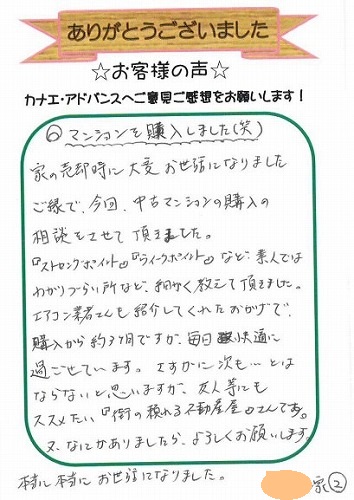 ありがとうございました
☆お客様の声☆
カナエ・アドバンスへご意見ご感想をお願いします！
⑥マンションを購入しました(笑)
家の売却時に大変お世話になりました
ご縁で、今回、中古マンションの購入の
相談をさせて頂きました。
『ストロングポイント』『ウィークポイント』など、素人では
わかりづらい所など、細かく教えて頂きました。
エアコン業者さんも紹介してくれたおかげで、
購入から約3ヶ月ですが、毎日快適に
過ごせています。さすがに次も…とは
ならないと思いますが、友人等にも
ススメたい『街の頼れる不動産屋』さんです。
又、なにかありましたら、よろしくお願いします。
本当に本当にお世話になりました。
家②